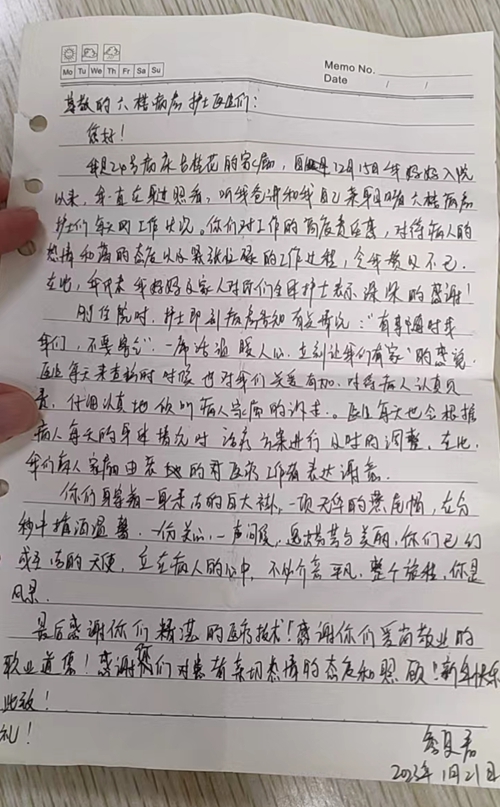 Mo Tu We Th Fr Sa Su
Memo No.
Date
尊敬的六楼病房护士医生们：
您好！
我是24号病床 桂花的家属，自 12月15日 妈妈入院
以来，我一直在身边照看，听我爸讲和我自己亲身目睹六楼病房
护士们每天的工作状况。你们对工作的高度责任感，对待病人的
热情和蔼的态度以及紧张忙碌的工作过程，令我赞叹不已.
在此，我代表我妈妈及家人对你们全体护士表示深深的感谢！
刚住院时，护士即到病房告知有关情况："有事随时找
我们，不要客气"．一席话温暖人心．立刻让我们有"家"的感觉．
医生每天来查房时时候也对我们关爱有加．对待病人认真负
责，仔细认真地倾听病人家属的诉求．。医生每天也会根据
病人每天的身体情况对治疗方案进行及时的调整．在此．
我们病人家属由衷地的对医疗工作者表达谢意．
你们身穿着一身素洁的白大褂，一顶 的燕尾帽，在分
秒中播洒温馨．一份关心，一声问候，   与美丽，你们已幻
成圣洁的天使．立在病人的心中．不 平凡．整个旅程，你是
风景．
最后感谢你们精湛的医疗技术！感谢你们爱岗敬业的
职业道德！感谢你们对患者亲切热情的态度和照顾！新年快乐
此致！
礼！
君
2023年1月21日